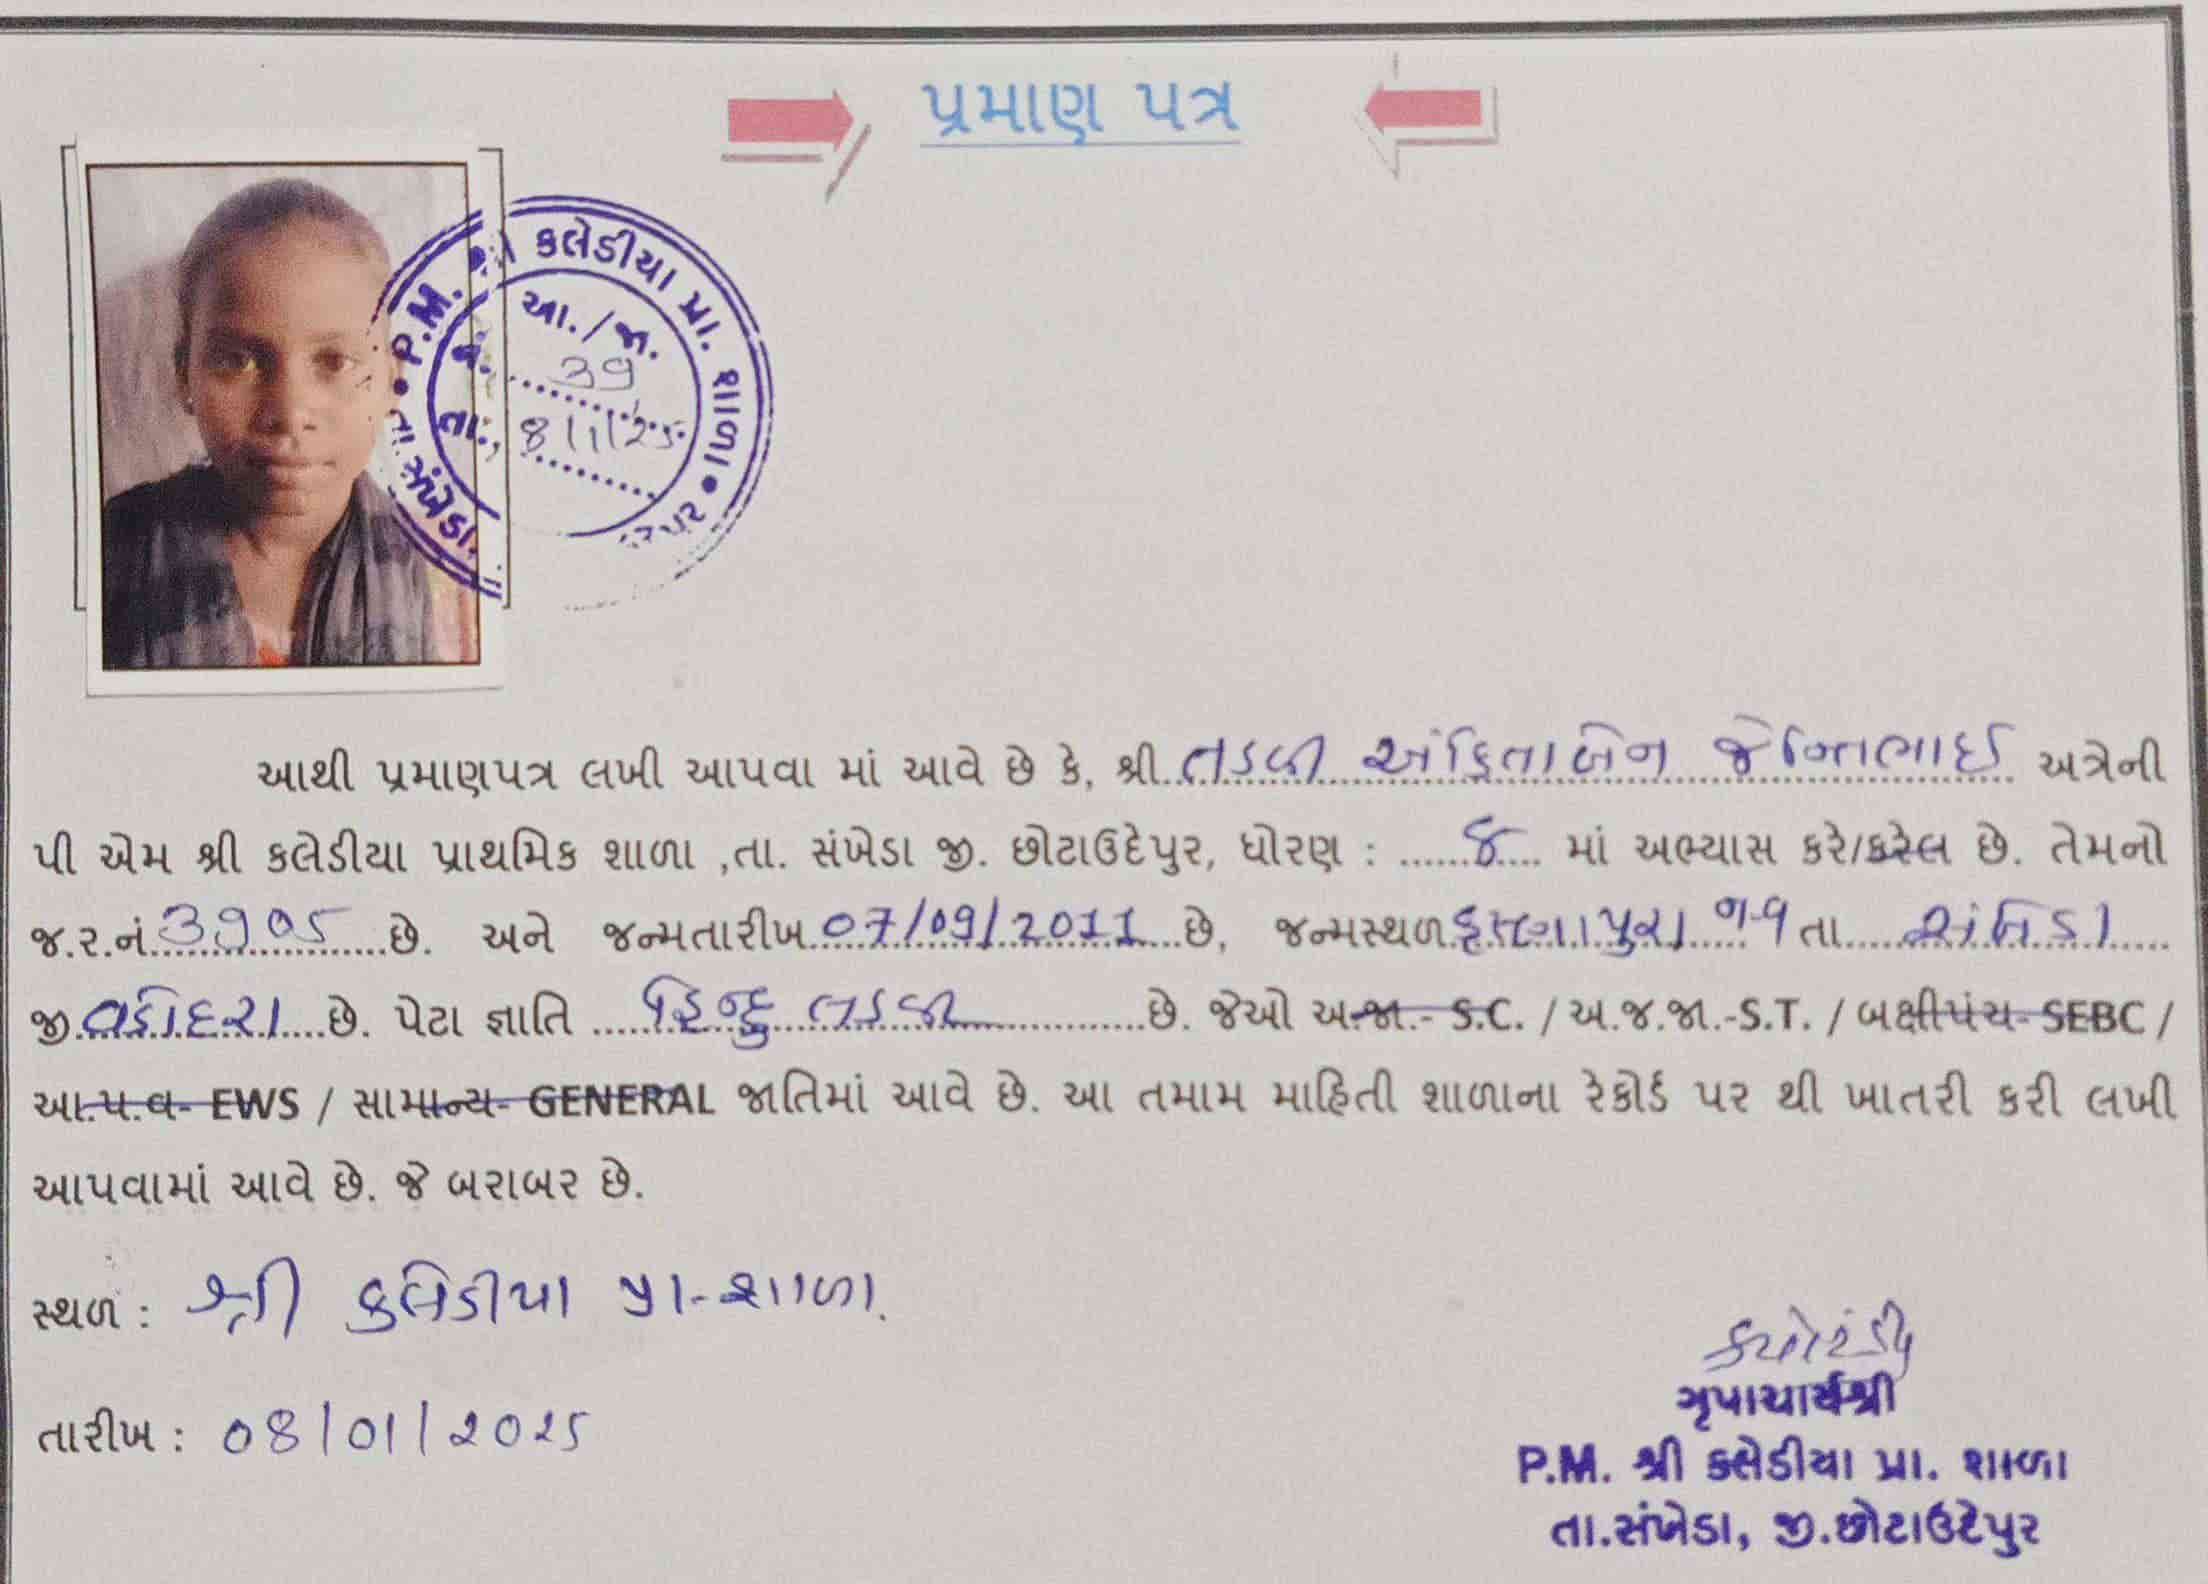 પ્રમાણ પત્ર
P.M. શ્રી કલેડીયા પ્રા. શાળા • તા. સંખેડા
આ./જા.
નં. 39
તા. 8/1/25
આથી પ્રમાણપત્ર લખી આપવા માં આવે છે કે, શ્રી તડવી અંકિતાબેન જેન્તિભાઈ અત્રેની
પી એમ શ્રી કલેડીયા પ્રાથમિક શાળા ,તા. સંખેડા જી. છોટાઉદેપુર, ધોરણ : ......૪.... માં અભ્યાસ કરે/કરેલ છે. તેમનો
જ.ર.નં. ૩૭૦૫ છે. અને જન્મતારીખ 07/09/2011 છે, જન્મસ્થળ કૃષ્ણાપુરા તા સંખેડા
જી વડોદરા છે. પેટા જ્ઞાતિ હિન્દુ તડવી છે. જેઓ અ.જા.- S.C. / અ.જ.જા.-S.T. / બક્ષીપંચ- SEBC /
આ.પ.વ- EWS / સામાન્ય- GENERAL જાતિમાં આવે છે. આ તમામ માહિતી શાળાના રેકોર્ડ પર થી ખાતરી કરી લખી
આપવામાં આવે છે. જે બરાબર છે.
સ્થળ : શ્રી કલેડીયા પ્રા-શાળા.
તારીખ : 08/01/2025
આચાર્યશ્રી
P.M. શ્રી કલેડીયા પ્રા. શાળા
તા.સંખેડા, જી.છોટાઉદેપુર